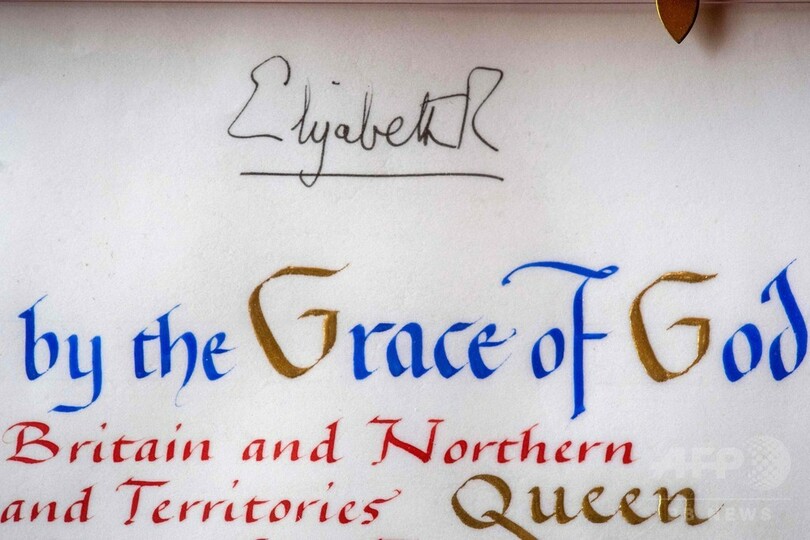 Elizabeth R
by the Grace of God
Britain and Northern
and Territories Queen
AFP
BB NEWS